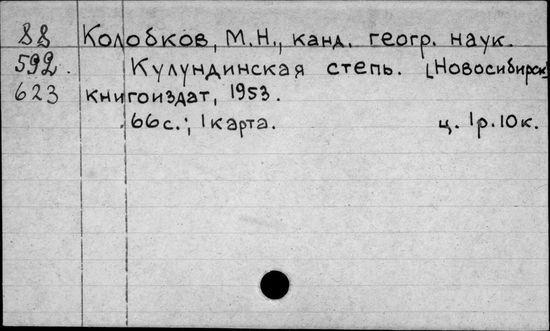 88 Колобков, М.Н., канд. геогр. наук.
592. Кулундинская степь. [Новосибирск]
623 книгоиздат, 1953.
66с.; 1 карта. ц. 1р.10к.